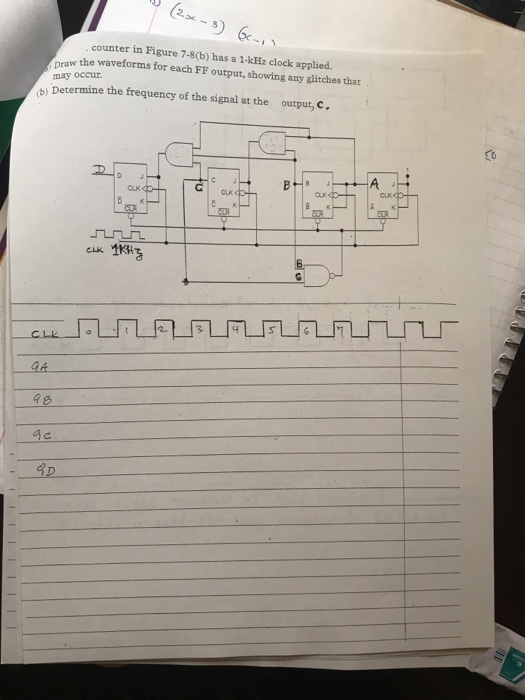 (2x - 3) (x - 1)
counter in Figure 7-8(b) has a 1-kHz clock applied.
Draw the waveforms for each FF output, showing any glitches that
may occur.
(b) Determine the frequency of the signal at the output, C.
D
D J
CLK
D K
CLR
C
C J
CLK
C K
CLR
B
B J
CLK
B K
CLR
A
J
CLK
A K
CLR
CLK 1KHz
B
C
50
CLK 0 1 2 3 4 5 6 7
qA
qB
qC
qD